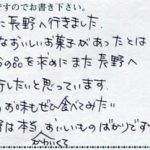 ですのでお書き下さい。
に長野へ行きました.
なおいしいお菓子があったとは
らの品を求めにまた長野へ
行したいと思っています.
のお味もぜひ食べてみたい
野は本当、すいいものばかりです
かわいくて